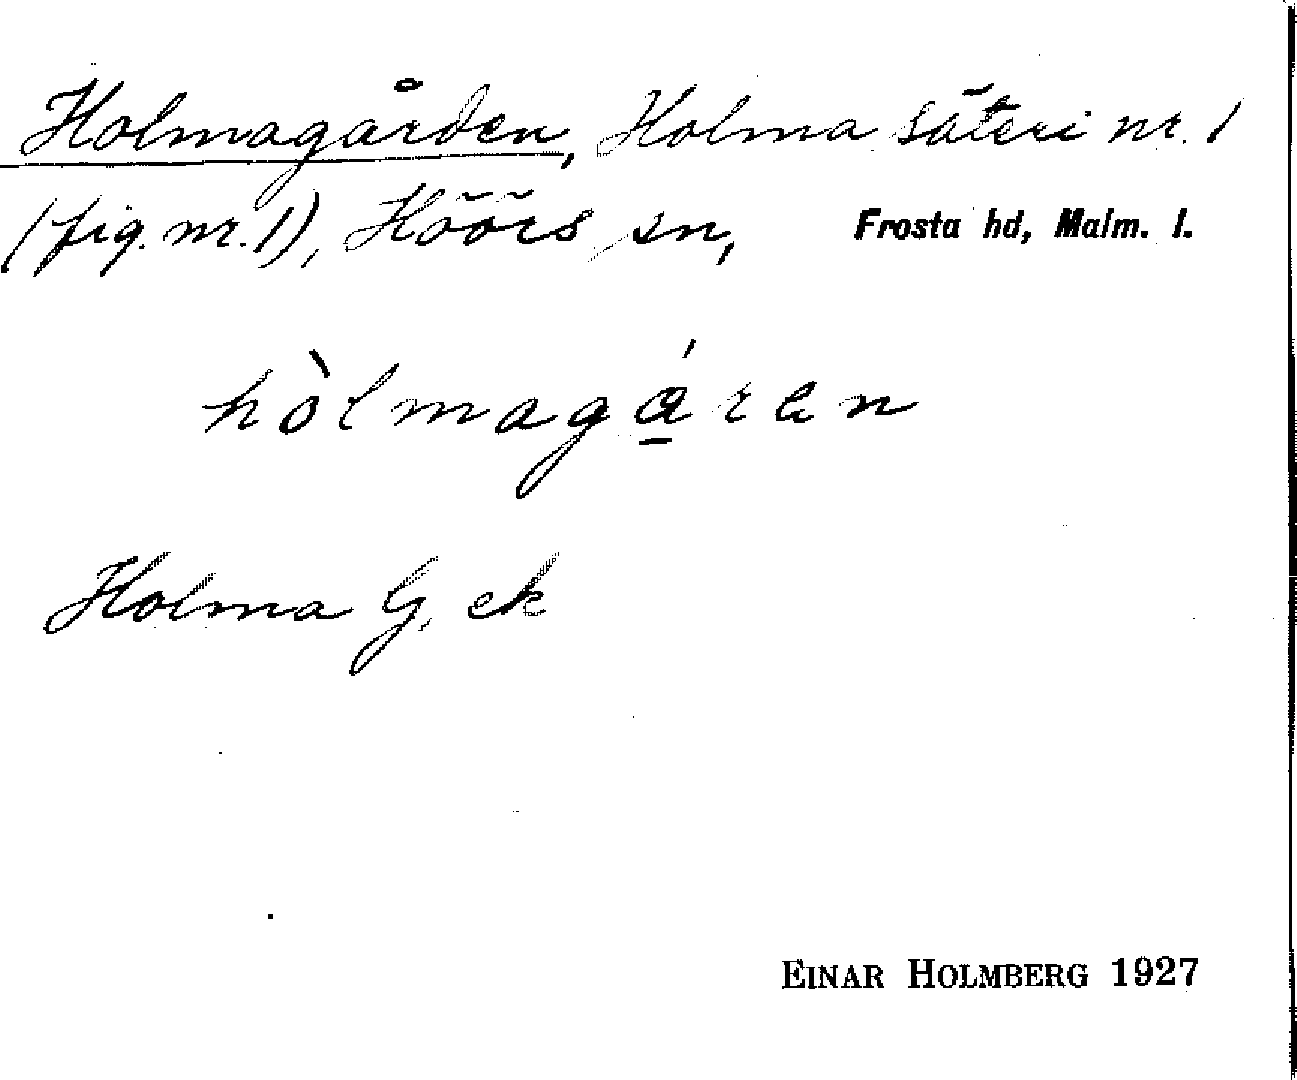 Holmagården, Holma säteri nr. 1
(fig. nr. 1), Höörs sn, Frosta hd, Malm. l.
hòlmagá̱ren
Holma G, ek
EINAR HOLMBERG 1927